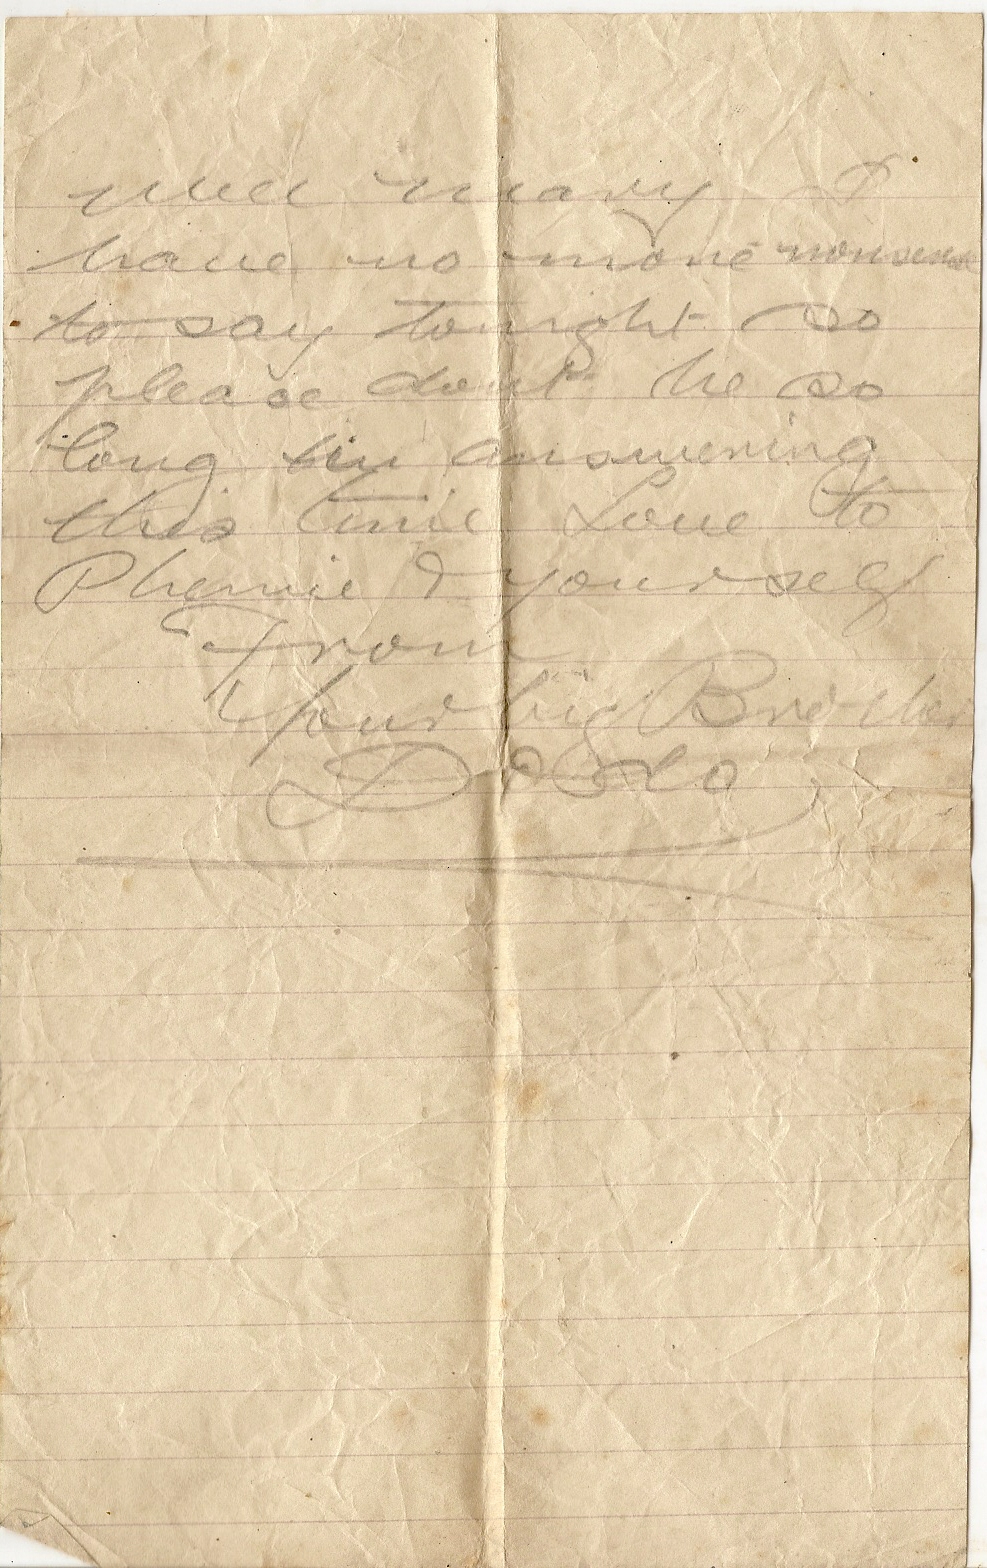 well mary I
have no more nonsense
to say tonight so
please dont be so
long in answering
this time Love to
Phemie & yourself
From
Your big Brother
Dodo